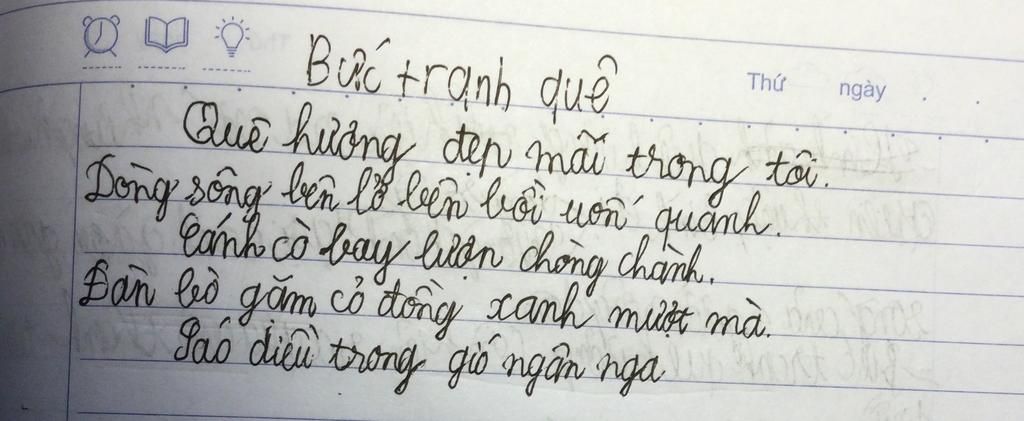 Bức tranh quê
Thứ ngày
Quê hương đẹp mãi trong tôi.
Dòng sông bên lở bên bồi uốn quanh.
Cánh cò bay lượn chòng chành.
Đàn bò gặm cỏ đồng xanh mượt mà.
Sáo diều trong gió ngân nga